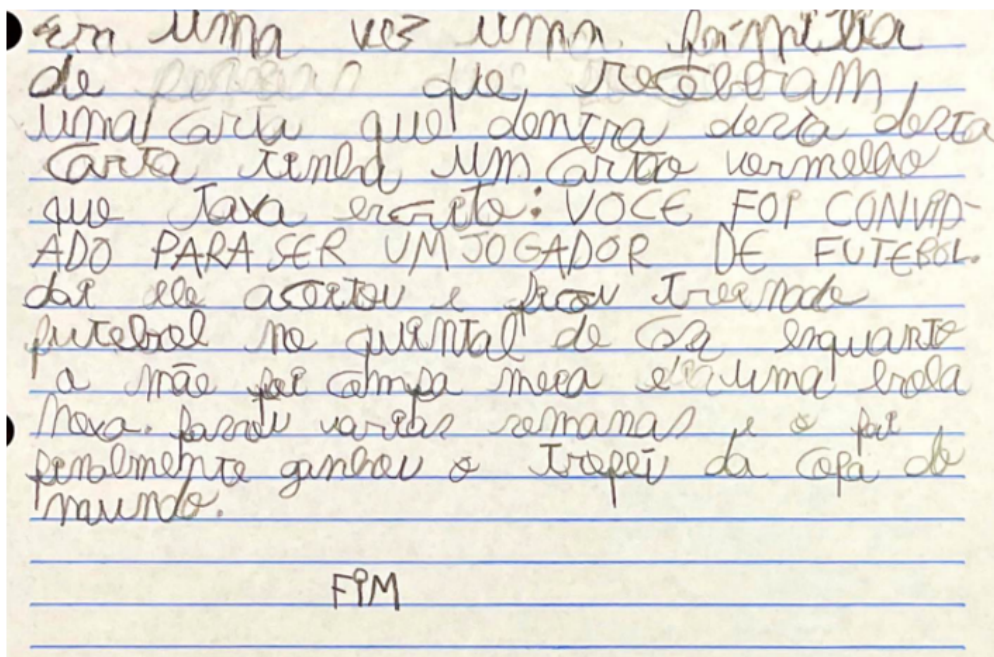 era uma vez uma família
de pessoas que receberam
uma carta que dentra desta desta
carta tinha um cartão vermelho
que tava escrito: VOCE FOI CONVID-
ADO PARA SER UM JOGADOR DE FUTEBOL.
dai ele aceitou e ficou treinado
futebol no quintal de casa enquanto
a mãe foi compa meca e uma bola
nova. passou varias semanas e o pai
finalmente ganhou o trofeu da copa do
mundo.
FIM